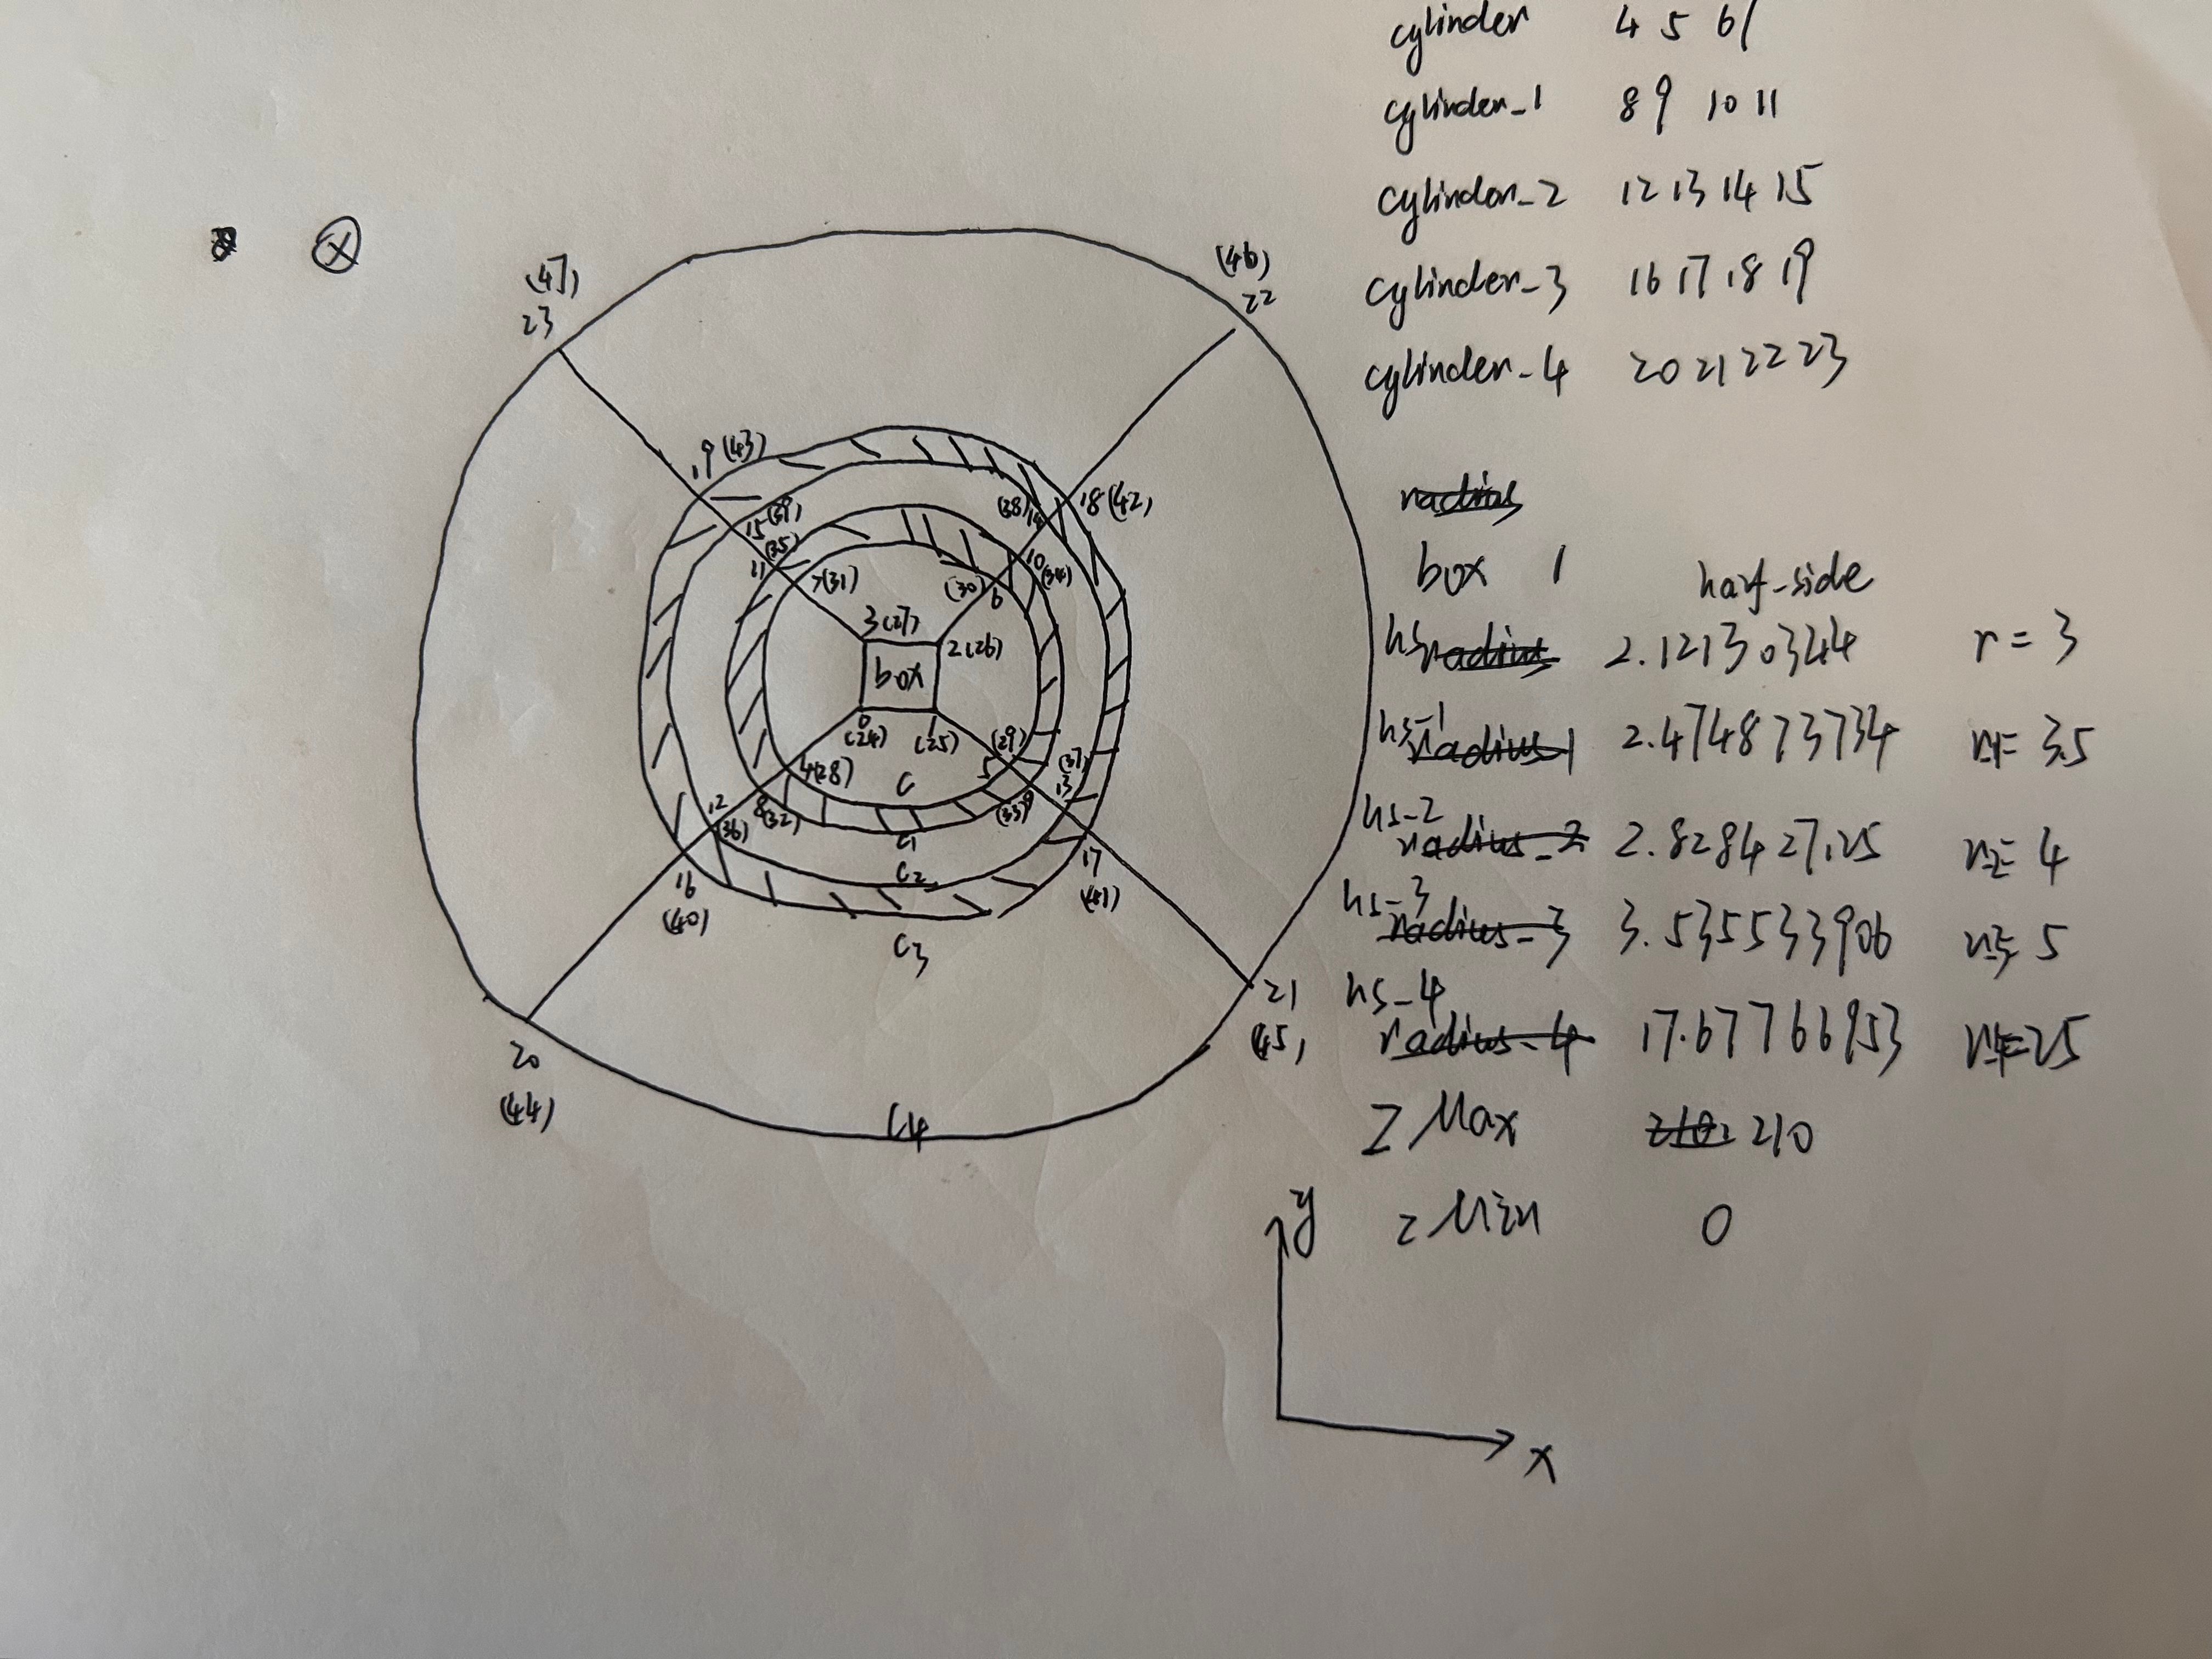 cylinder 4 5 6 7
cylinder_1 8 9 10 11
cylinder_2 12 13 14 15
cylinder_3 16 17 18 19
cylinder_4 20 21 22 23
radius
box 1 half-side
hs radius 2.12130344 r = 3
hs_1 radius_1 2.474873734 r1= 3.5
hs_2 radius_2 2.828427125 r2= 4
hs_3 radius_3 3.535533906 r3= 5
hs_4 radius_4 17.67766953 r4=25
Z Max 210. 210
z Min 0
y
x
(47)
23
(46)
22
19 (43)
18 (42)
15 (39)
(38) 14
11 (35)
10
(34)
7 (31)
(30) 6
3 (27)
2 (26)
box
0
(24)
1
(25)
4 (28)
(29)
5
8 (32)
(33) 9
12
(36)
(37)
13
16
(40)
17
(41)
C
C1
C2
C3
C4
20
(44)
21
(45)